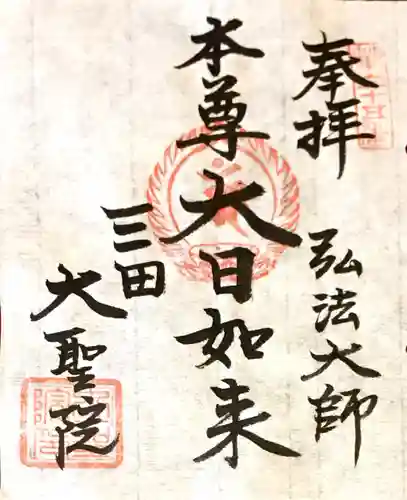 奉拝
弘法大師
本尊大日如来
三田
大聖院